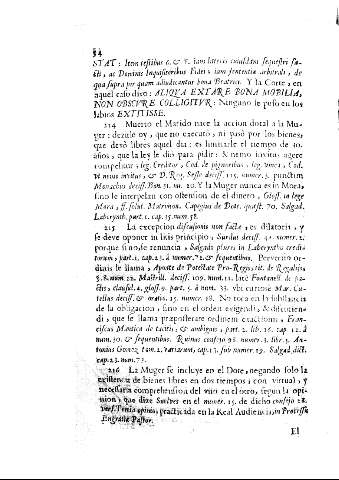 54
STAT: Item testibus 6. & 8. iam latere cuiusdam sequestri fa-
cti, ac Dominis Inquisitoribus Fidei, iam sententia arbitrali, de
qua supra per quam adiudicantur bona Beatrici. Y la Corte, en
aquel caso dixo: ALIQVA EXTARE BONA MOBILIA,
NON OBSCVRE COLLIGITVR: Ninguno le puso en los
labios EXTITISSE.
214 Muerto el Marido nace la accion dotal a la Mu-
ger: dezule oy, que no executò, ni pasò por los bienes,
que dexò libres aquel dia: es limitarle el tiempo de 30.
años, que la ley le dio para pidir: Nemo invitus agere
compellitur, leg. Creditor, Cod. de pignoribus, leg. vnica, Cod.
Vt nemo invitus, & D. Reg. Sesse decis. 115. numer. 3. punctim
num. 10. Y la Muger nunca es in Mora,
sino le interpelan con oftension de el dinero, Gloss. in lege
Mora, ff. solut. Matrimon. Capyciu de Dote, quæst. 70. Salgad.
Labyrinth. part. 1. cap. 15. num. 58.
215 La excepcion discussionis non factæ, es dilatoria, y
se deve oponer in litis principio, Surdus decis. 42. numer. 2.
porque sino le renuncia, Salgado plures in Labyrintho credito-
rum, part. 1. cap. 23. à numer. 72. & sequentibus. Pervenio or-
dinis se llama, Aponte de Potestate Pro-Regis, tit. de Regalijs,
§. 8. num. 22. Mastrill. decis. 109. num. 11. late Fontanell. de pa-
ctis, clausul. 4. gloss. 9. part. 5. à num. 33. vbi curiose Mar. Cu-
tellus decis. & oratio. 15. numer. 18. No toca en la substancia
de la obligacion, sino en el orden exigendi, & discutien-
di, que se llama praepostere ordinem exactionis, Fran-
ciscus Mantica de tacitis, & ambiguis, part. 2. lib. 16. cap. 12. à
num. 30. & sequentibus. Ruinus consil. 96. numer. 3. lib. 5. An-
tonius Gomez tom. 2. variarum, cap. 13. sub numer. 19. Salgad. dict.
cap. 23. num. 73.
216 La Muger se incluye en el Dote, negando solo la
existencia de bienes libres en dos tiempos, con virtual, y
necessaria comprehension del vno en el otro, segun la opi-
nion, que dize Surdus en el numer. 15. de dicho consejo 28.
opinio, practicada en la Real Audiencia in Processu
Engratiæ Pastor.
El